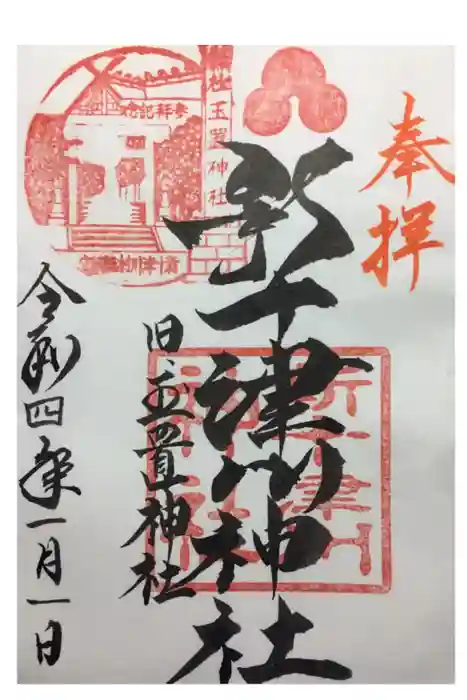 奉拝
新十津川神社
旧玉置神社
令和四年一月一日
社玉置神社
参拝記念
新十津川